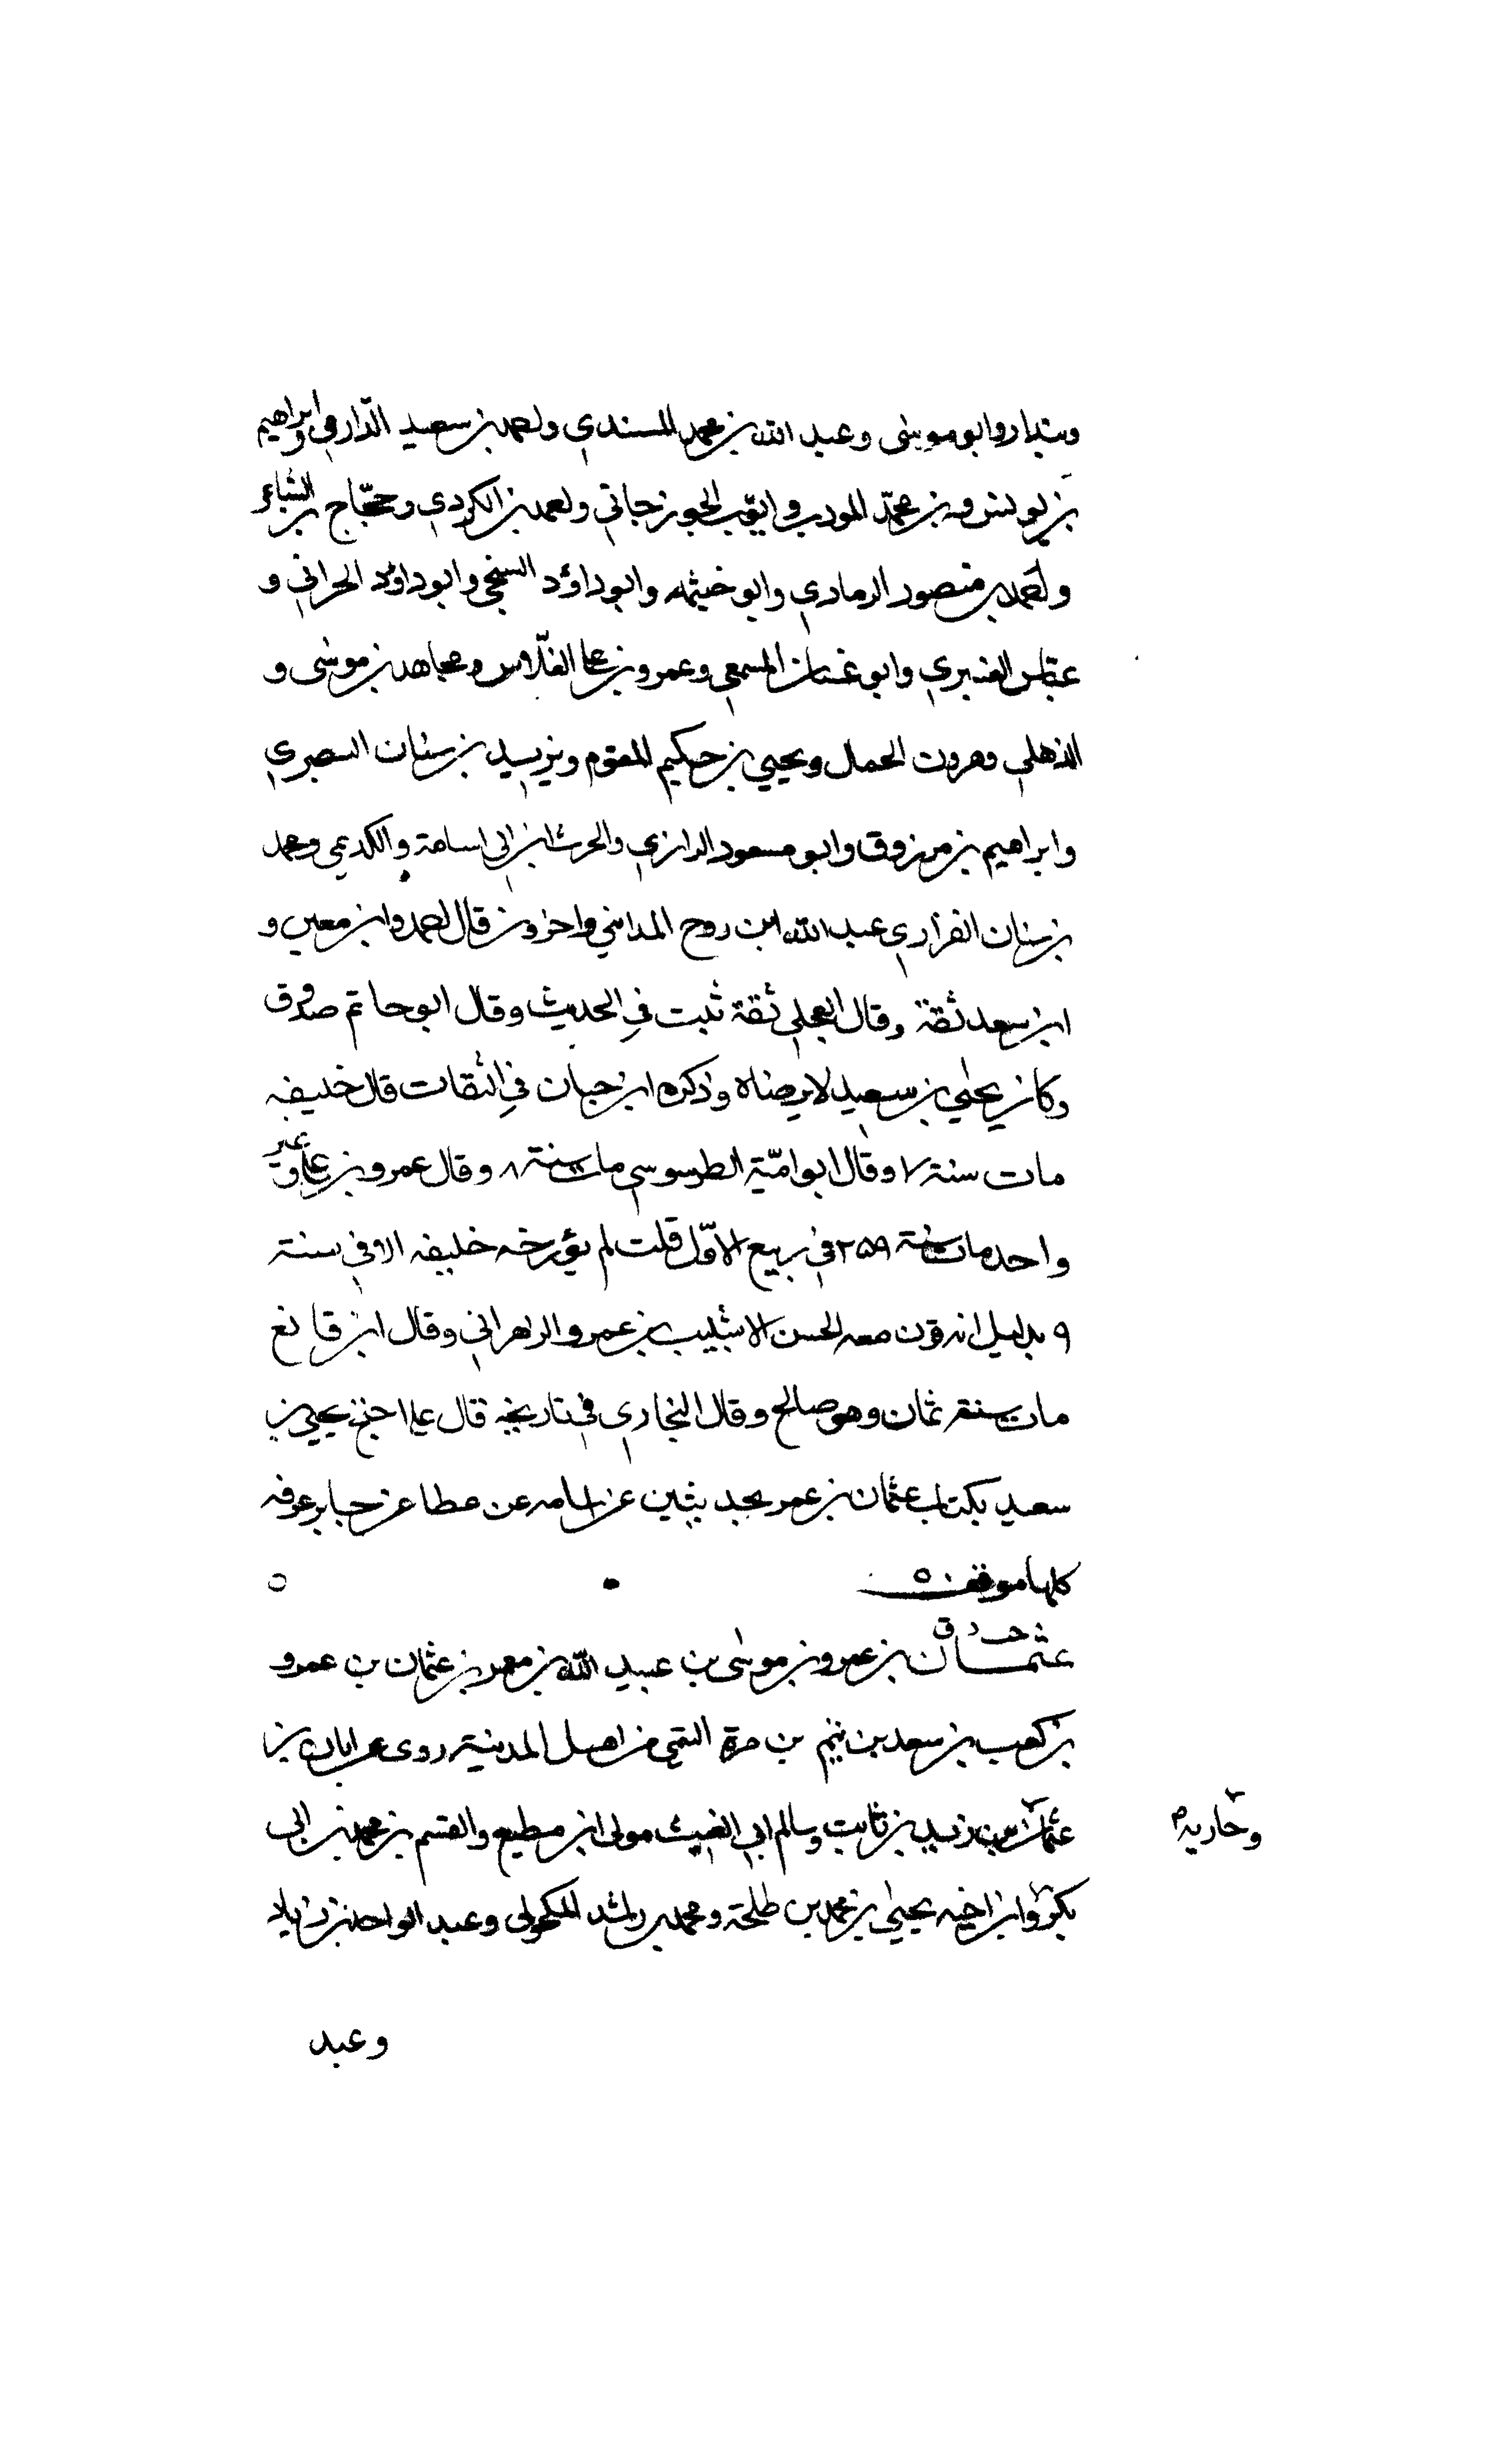 وبندار وابو موسى وعبد الله بن محمد المسندي واحمد بن سعيد الدارمي وابراهيم
بن يونس بن محمد المودب وابو يعقوب الجوزجاني واحمد بن الكردي وحجاج بن الشاعر
واحمد بن منصور الرمادي وابو خيثمه وابو داؤد السنجي وابو داؤد الحراني و
عباس العنبري وابو غسان المسمعي وعمرو بن علي الفلاس ومجاهد بن موسى و
الذهلي وهرون الحمال ويحيي بن حكيم المقوم ويزيد بن سنان البصري
وابراهيم بن مرزوق وابو مسعود الرازي والحرث ابن ابي اسامة والكديمي ومحمد
بن سنان القزاز ي عبد الله ابن روح المدايني واخرون قال احمد وابن معين و
ابن سعد ثقة وقال العجلي ثقة ثبت في الحديث وقال ابو حاتم صدوق
وكان يحيي بن سعيد لا يرضاه وذكره ابن حبان في الثقات قال خليفه
مات سنة ٧ وقال ابو اميّة الطرسوسي مات سنة ٨ وقال عمرو بن علي وغير
واحد مات سنة ٢٥٩ في ربيع الاوّل قلت لم يؤرخه خليفه الا في سنة
٩ بدليل انه قرن معه الحسن الاشيب بن عمر والزهراني وقال ابن قانع
مات سنة ثمان وهو صالح وقال البخاري في تاريخه قال علي احتج يحيي بن
سعيد بكتاب عثمان بن عمر بحديثين عن اسامه عن عطا عن جابر عرفه
كلها موقف ٥٠
عثمـــان بن عمرو بن موسى بن عبيد الله بن معمر بن عثمان بن عمرو
بن كعب بن سعد بن تيم بن مرة التيمي من اهل المدينة روى عن ابان بن
عثمان بن زيد بن ثابت وسالم ابي الغيث مولى ابن مطيع والقسم بن محمد بن ابي
بكر وابن اخيه يحيى بن محمد بن طلحة ومحمد بن راشد المكحولي وعبد الواحد بن زياد
وعبد